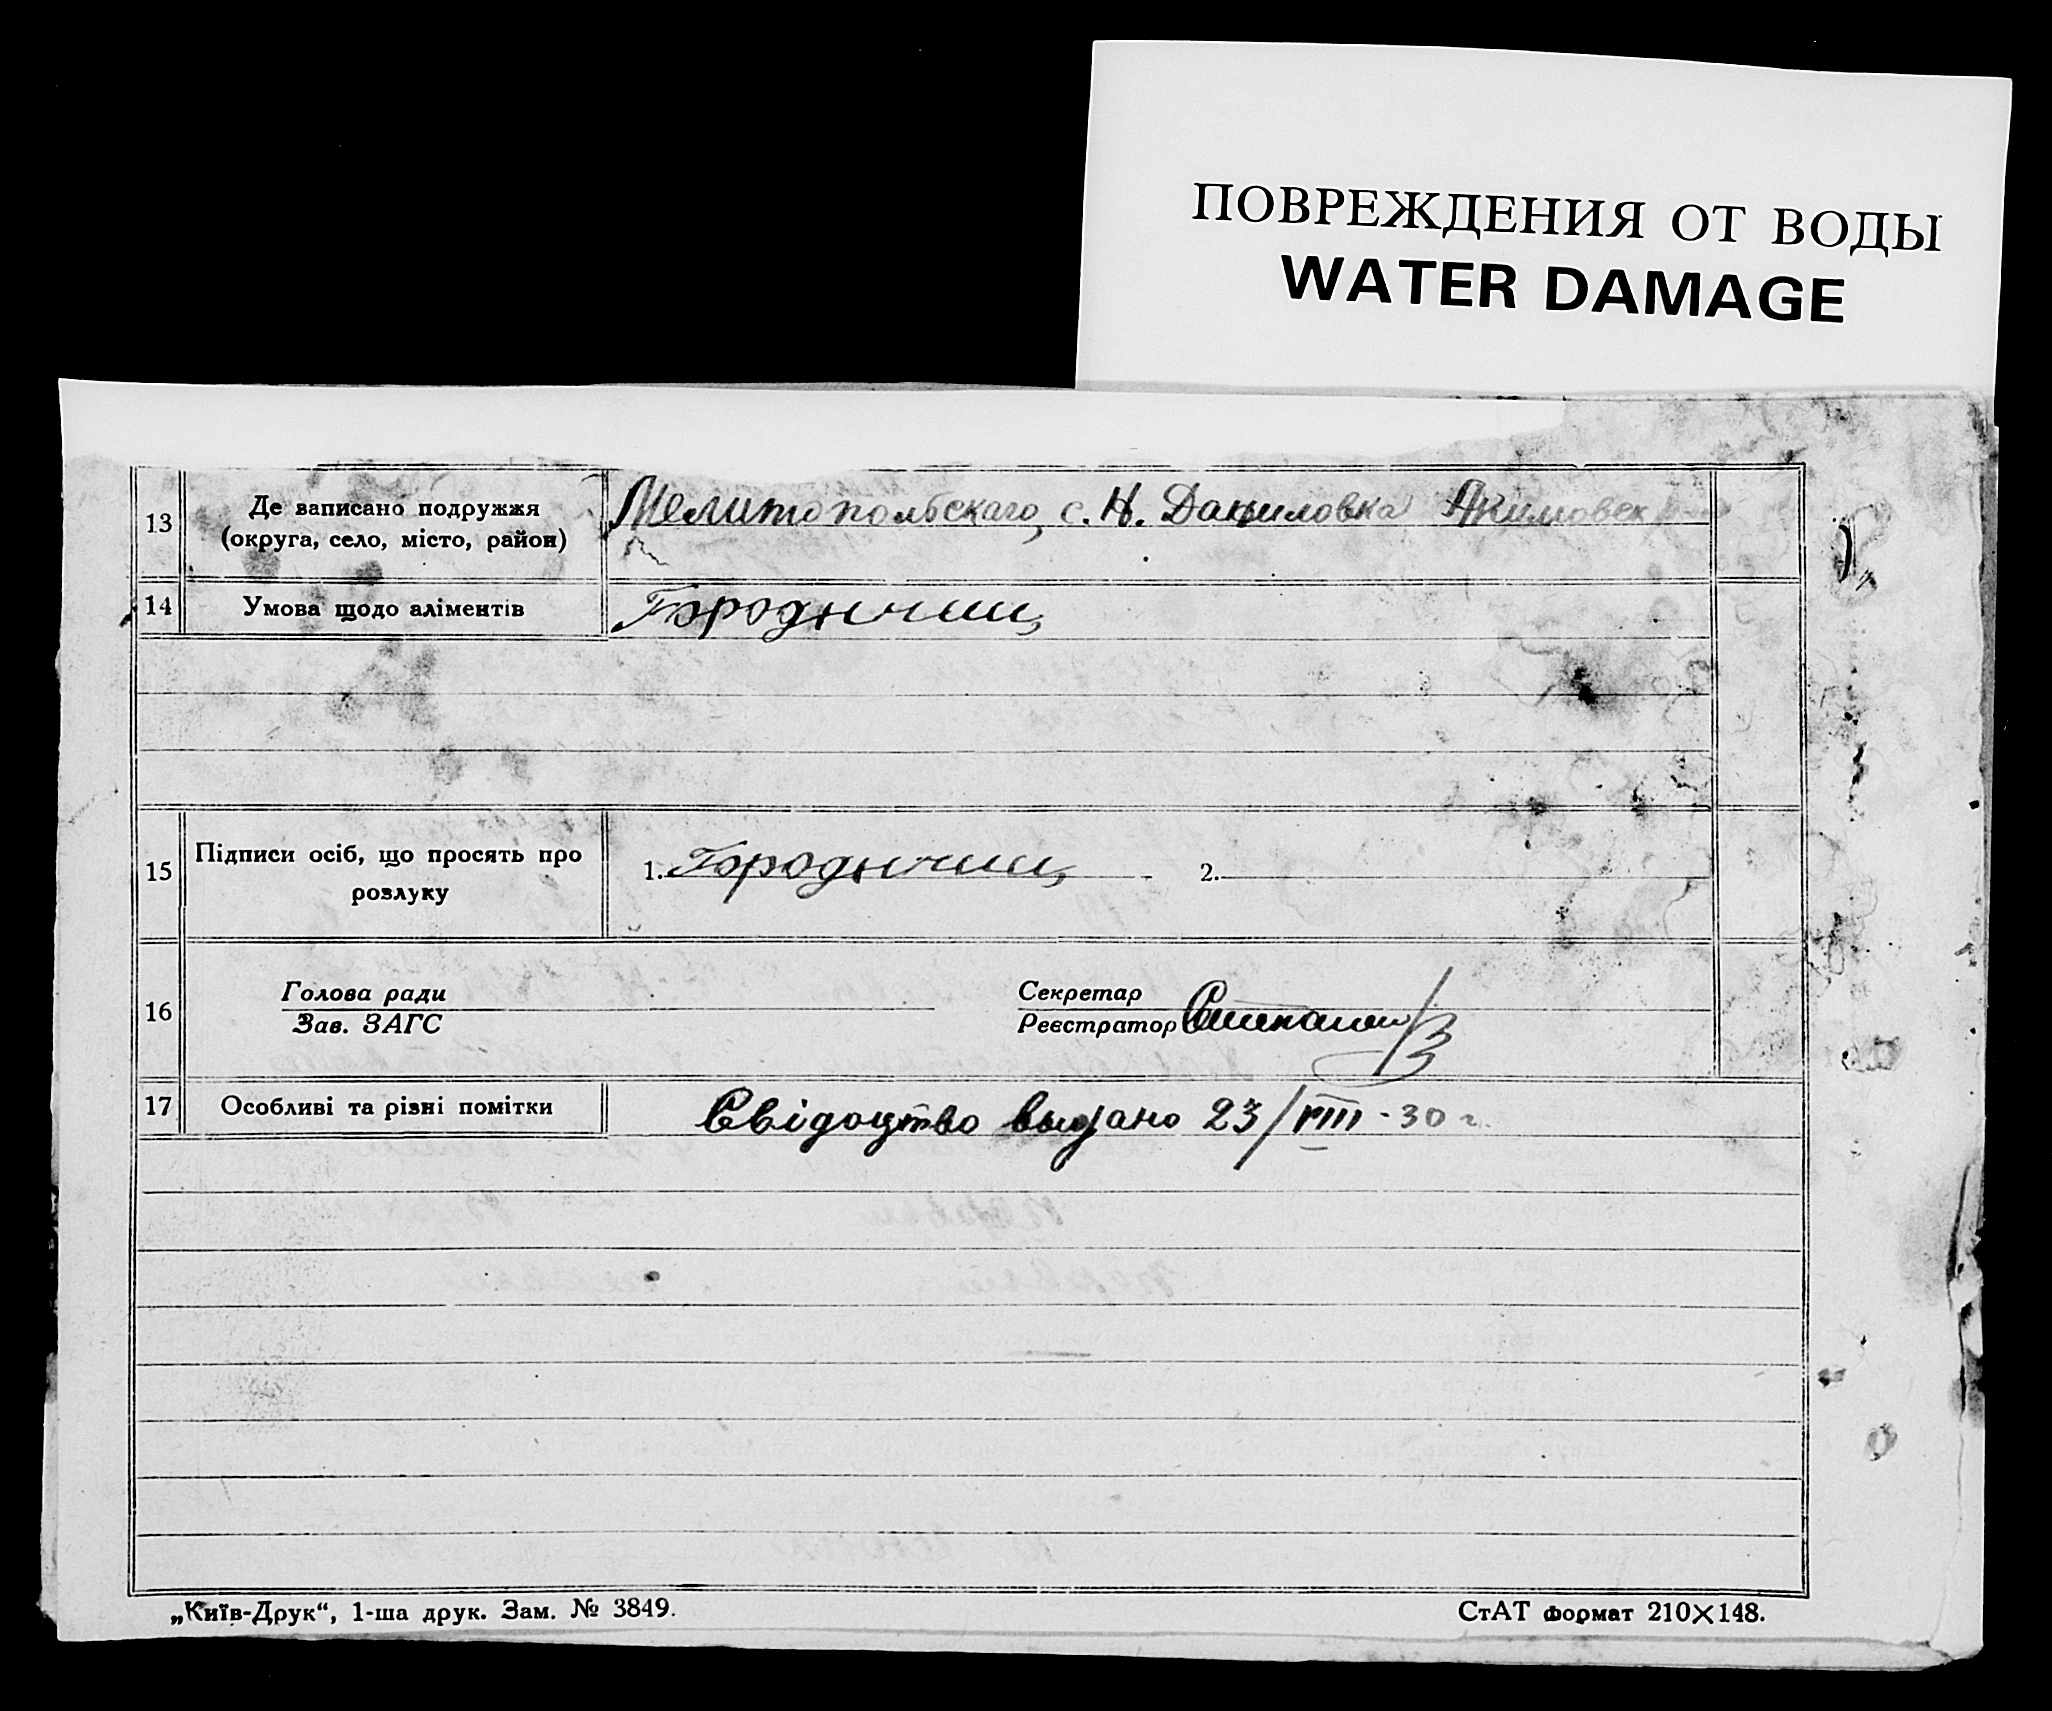 ПОВРЕЖДЕНИЯ ОТ ВОДЫ
WATER DAMAGE
13 Де записано подружжя (округа, село, місто, район) Мелитопольскаго, с. Н. Даниловка Якимовск
14 Умова щодо аліментів
15 Підписи осіб, що просять про розлуку 1. 2.
16 Голова ради Секретар
Зав. ЗАГС Реєстратор
17 Особливі та різні помітки Свідоцтво выдано 23/VIII - 30 г.
„Київ-Друк“, 1-ша друк. Зам. № 3849. СтАТ формат 210×148.